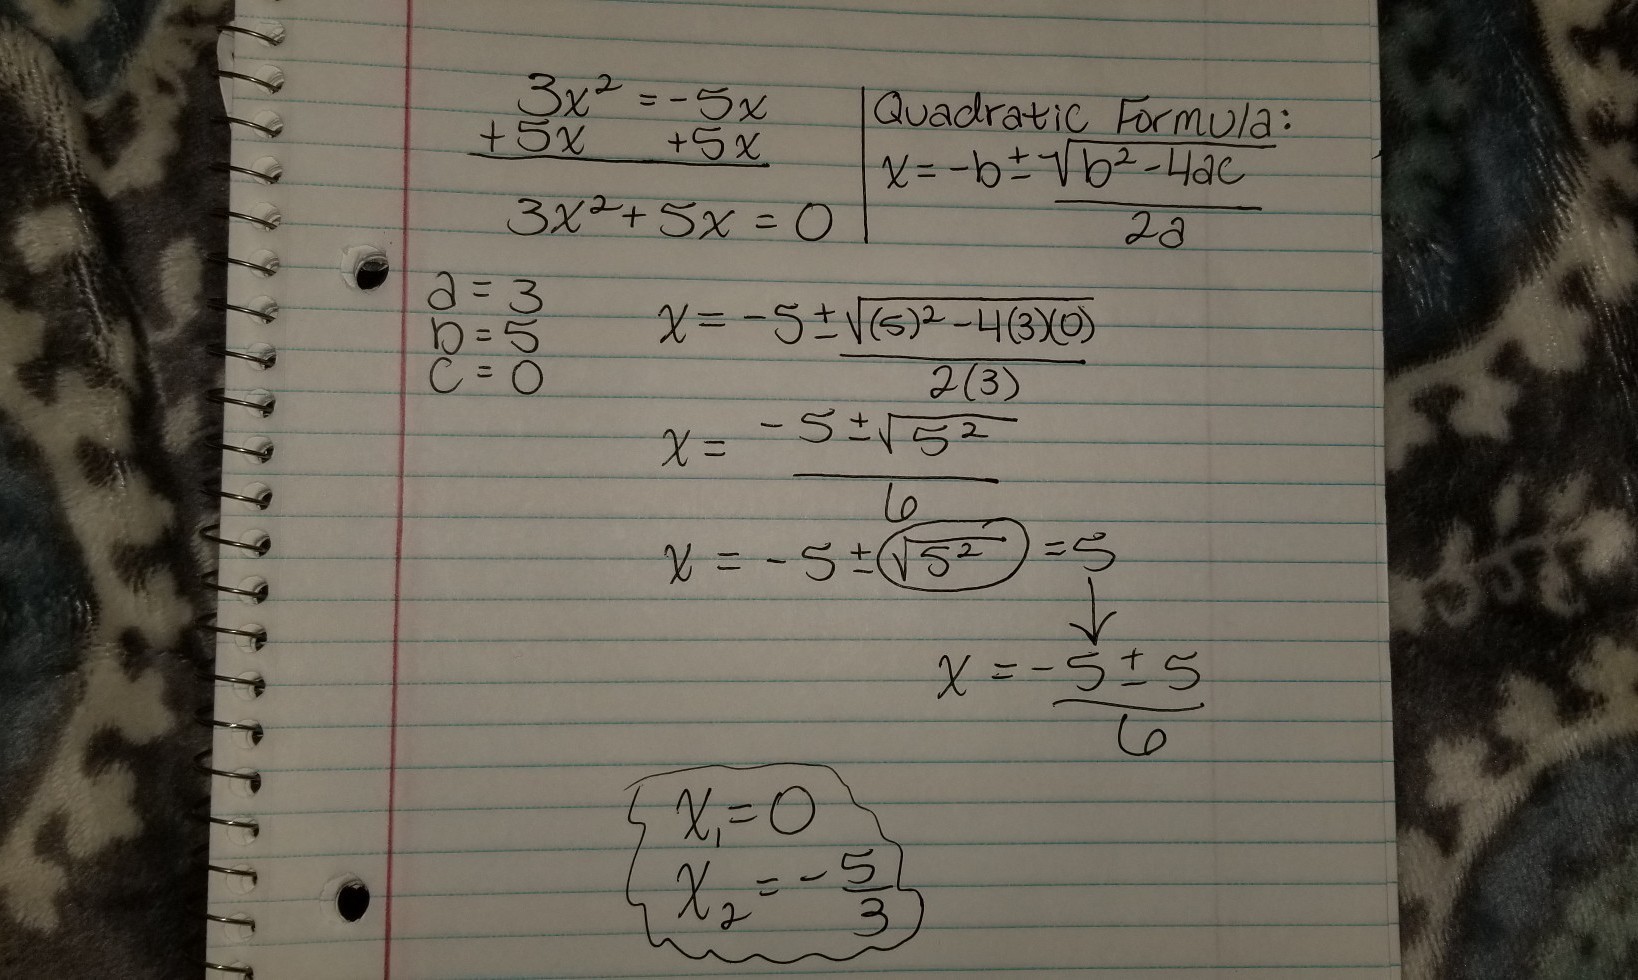 3x² = -5x
+5x +5x
3x² + 5x = 0
Quadratic Formula:
x = -b ± √b² - 4ac
2a
a = 3
b = 5
c = 0
x = -5 ± √(5)² - 4(3)(0)
2(3)
x = -5 ± √5²
6
x = -5 ± √5² = 5
↓
x = -5 ± 5
6
x₁ = 0
x₂ = - 5
3